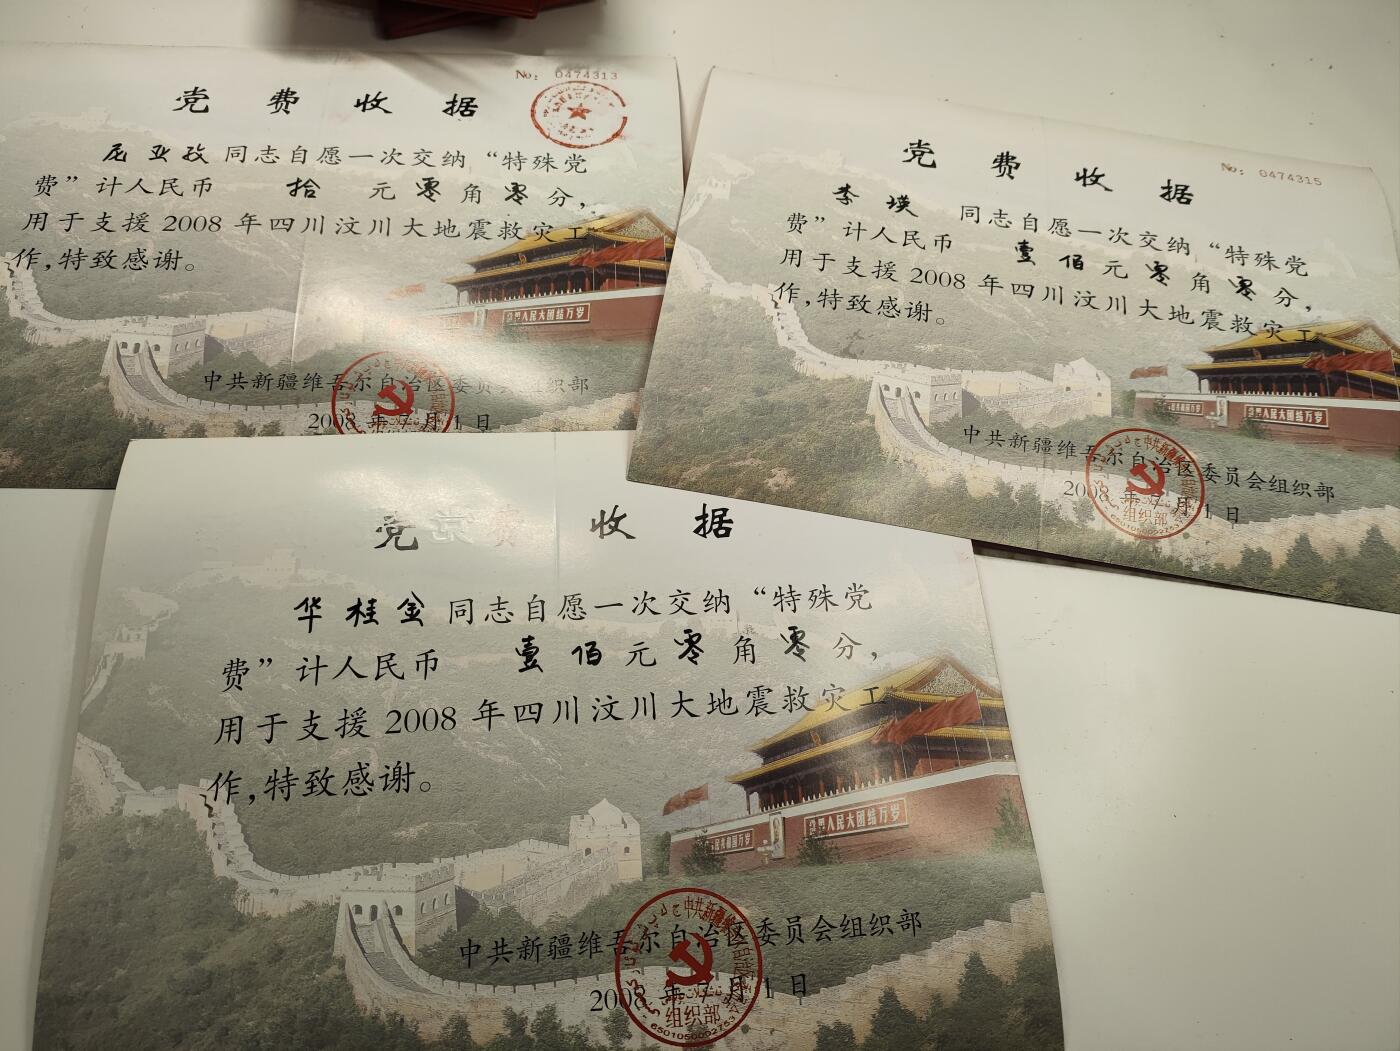 No: 0474313
党费收据
庞亚政同志自愿一次交纳“特殊党
费”计人民币 拾 元零角零分，
用于支援2008年四川汶川大地震救灾工
作，特致感谢。
人民大团结万岁
中共新疆维吾尔自治区委员会组织部
2008年7月1日
No: 0474315
党费收据
李瑛 同志自愿一次交纳“特殊党
费”计人民币 壹佰元零角零分，
用于支援2008年四川汶川大地震救灾工
作，特致感谢。
人民大团结万岁
中共新疆维吾尔自治区委员会组织部
2008年7月1日
中共新疆维
组织部
党费收据
华桂金同志自愿一次交纳“特殊党
费”计人民币 壹佰元零角零分，
用于支援2008年四川汶川大地震救灾工
作，特致感谢。
民共和国万岁
人民大团结万岁
中共新疆维吾尔自治区委员会组织部
2008年7月1日
中共新疆维
组织部
6501050092753